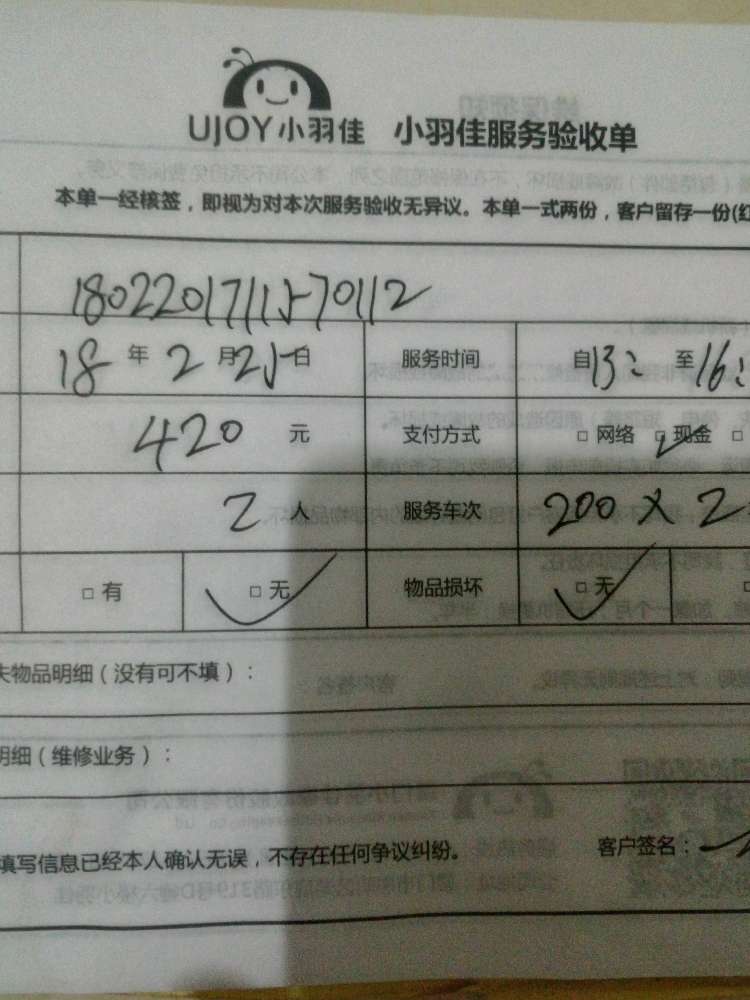 UJOY小羽佳 小羽佳服务验收单
本单一经核签，即视为对本次服务验收无异议。本单一式两份，客户留存一份(红
1802201711570112
18年2月25日 服务时间 自13： 至16：
420元 支付方式 □网络 □现金 □
2人 服务车次 200×2
□有 □无 物品损坏 □无
失物品明细（没有可不填）：
明细（维修业务）：
填写信息已经本人确认无误，不存在任何争议纠纷。 客户签名：